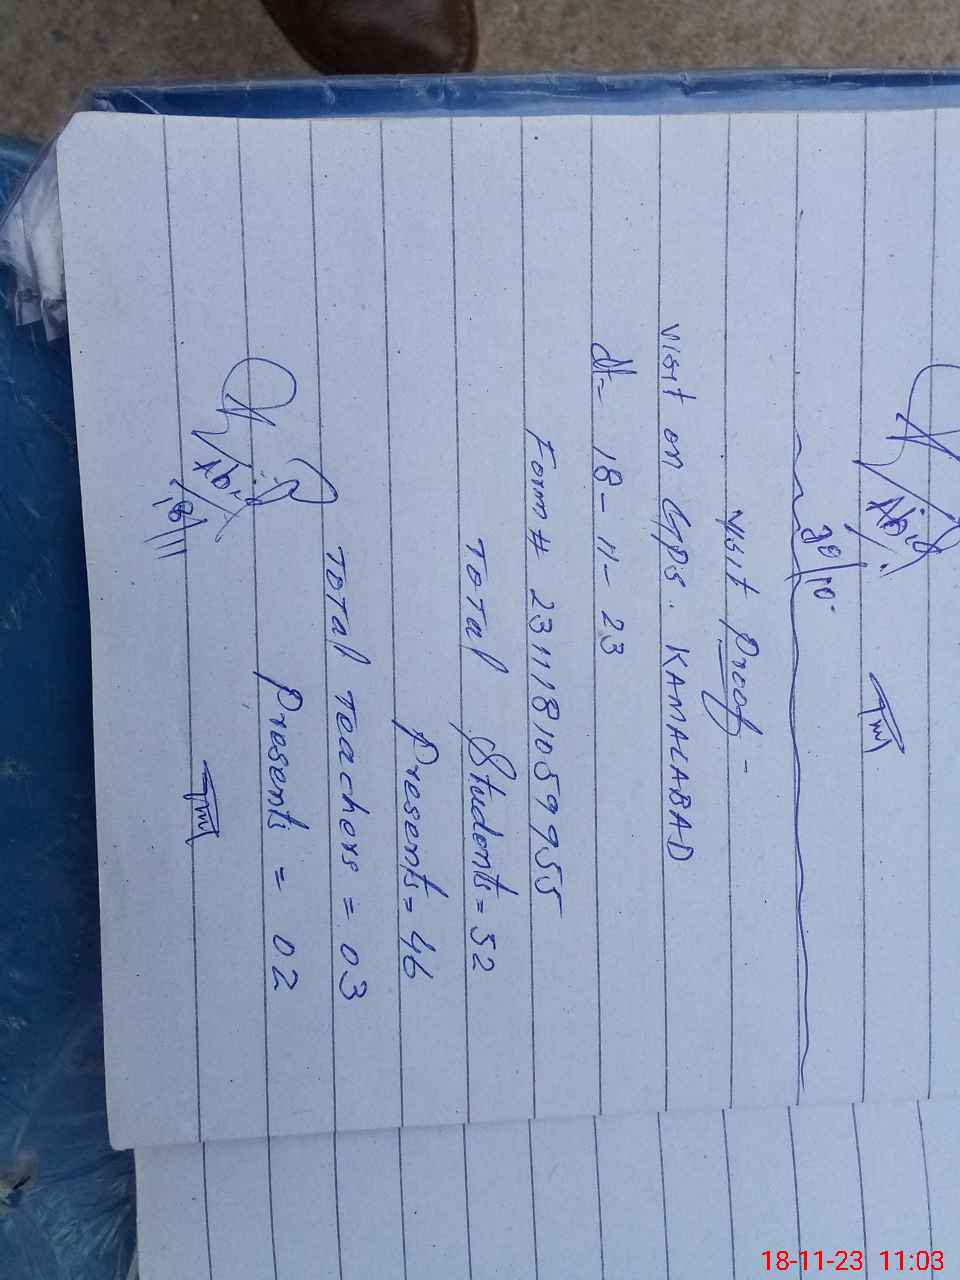 Abid
30/10
Visit Proof -
Visit on GPS. KAMALABAD
dt- 18-11-23
Form # 2311181059955
Total Students = 52
Presents = 46
Total Teachers = 03
Presents = 02
Abid
18/11
18-11-23 11:03